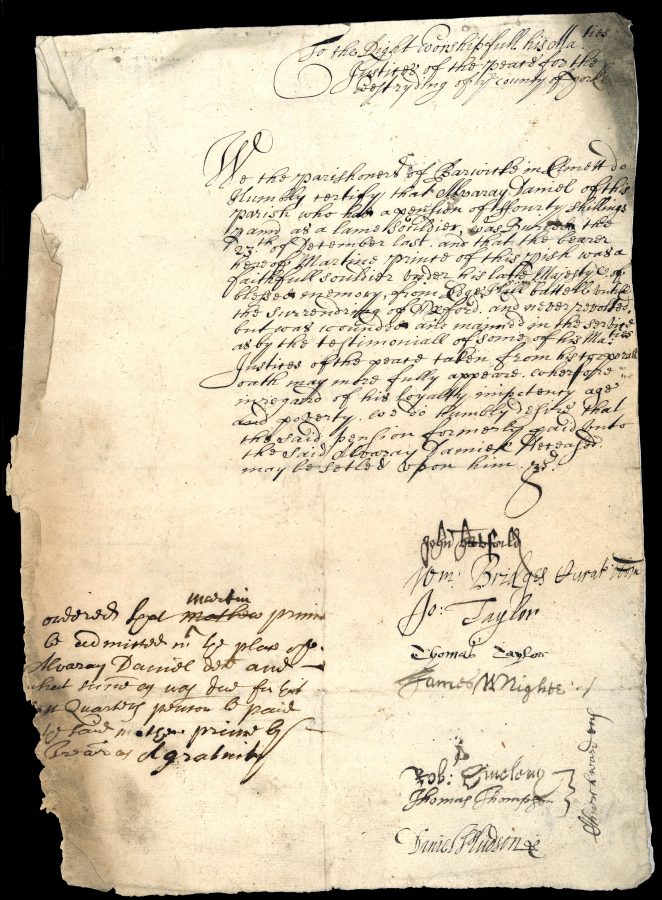 To the Right worshipfull his Ma:ties
Justices of the peace for the
westryding of ye county of yorke
We the parishoners of Barwicke in Elmett do
Humbly certify that Alvaray Daniel of this
parish who had a pension of ffourty shillings
p and as a lame souldier, was Buried the
23th of December last, and that the bearer
hereof Martine Prince of this prish was a
faithfull souldier under his late Majesty of
blessed memory, from Edge-hill battell untill
the surrendring of Oxford, and never revolted,
but was wounded and maimed in the service
as by the testimoniall of some of his Ma:ties
Justices of the peace taken from his corporall
oath may more fully appeare. wherefore
in regard of his loyalty, impotency age
and poverty. we do humbly desire that
the said pension formerly paid unto
the said Alvaray Daniel deceased
may be setled upon him.
John
Wm: Bridges Curat
Jo: Taylor
Thomas Taylor
James Wright
Rob:
Thomas Thompson
Churchwardens
Daniel Hudson
martin
ordered that mathew prince
be admitted in the place of
Alvaray Daniel ded and
that
Quarters pencon be paid
the said mathew prince by
Trear as A gratuity